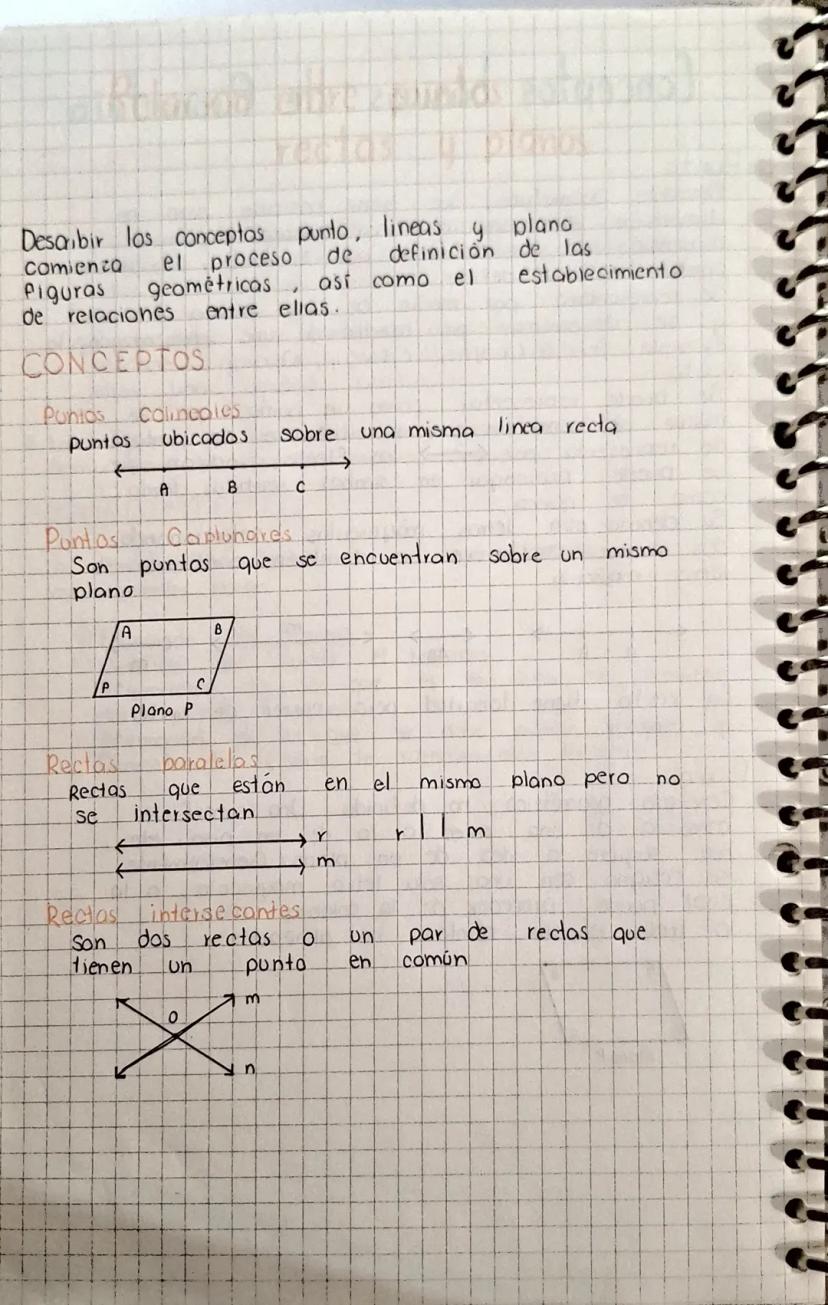 Describir los conceptos punto, lineas y plano
comienza el proceso de definición de las
figuras geométricas, así como el establecimiento
de relaciones entre ellas.
CONCEPTOS
Puntos colineales
puntos ubicados sobre una misma linea recta
A B C
Puntos Coplunares
Son puntos que se encuentran sobre un mismo
plano
A B
P C
Plano P
Rectas paralelas
Rectas que están en el mismo plano pero no
se intersectan
r r || m
m
Rectas intersecantes
Son dos rectas o un par de rectas que
tienen un punto en común
m
O
n